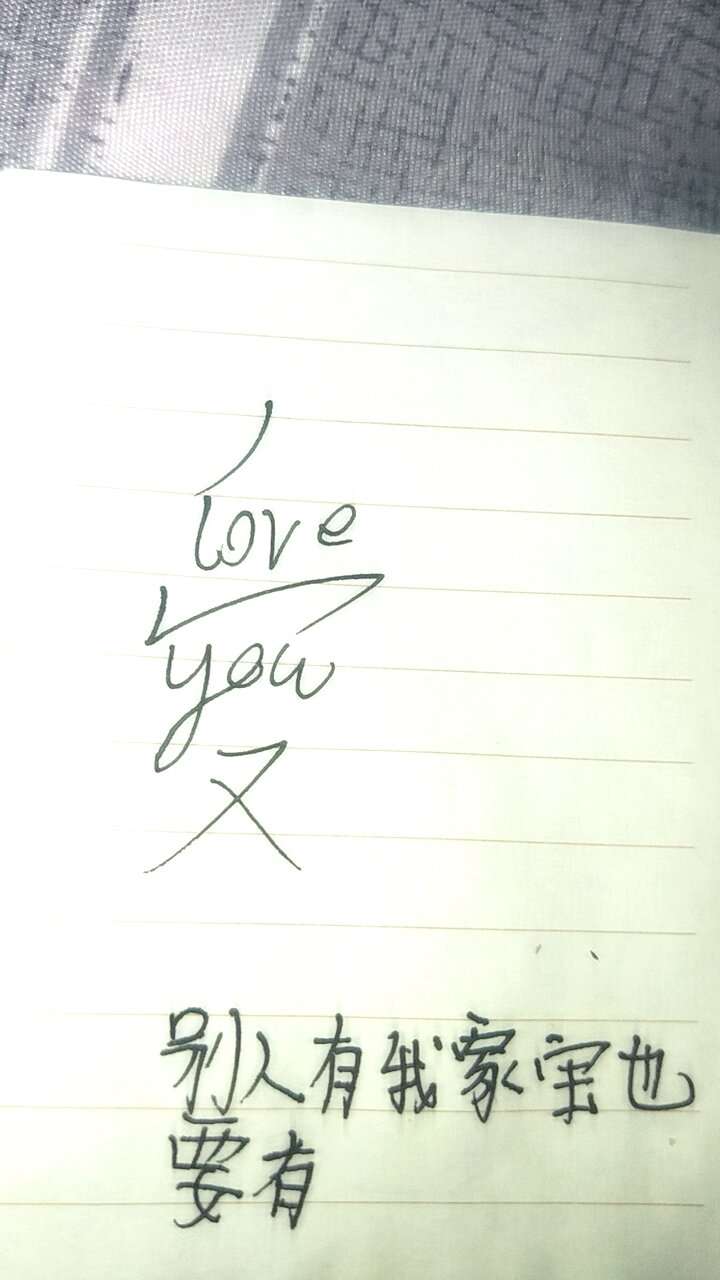 love
you
又
别人有我家宝也
要有